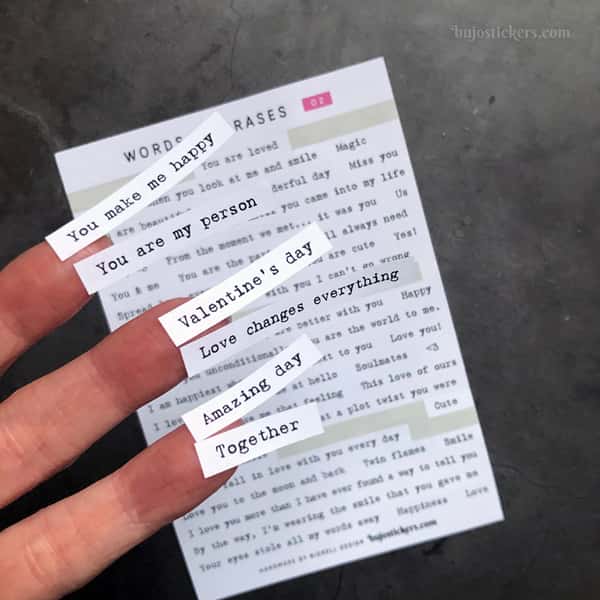 bujostickers.com
WORDS RASES 02
You are loved Magic
when you look at me and smile Miss you
derful day
you came into my life
From the moment we met... it was you Us
You & me You are the always need
are cute Yes!
with you I can't go wrong
better with you Happy
unconditionally are the world to me.
I am happiest to you Love you!
at hello Soulmates <3
me that feeling This love of ours
a plot twist you were
Cute
fall in love with you every day
Love you to the moon and back Twin flames Smile
I love you more than I have ever found a way to tell you
By the way, I'm wearing the smile that you gave me
Your eyes stole all my words away Happiness Love
HANDMADE BY bujostickers.com
You make me happy
You are my person
Valentine's day
Love changes everything
Amazing day
Together